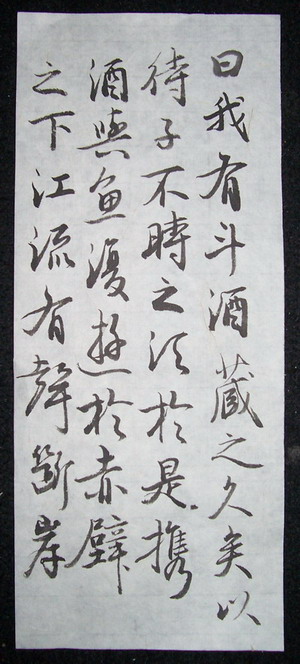 曰我有斗酒藏之久矣以
待子不時之須於是攜
酒與魚復遊於赤壁
之下江流有聲斷岸